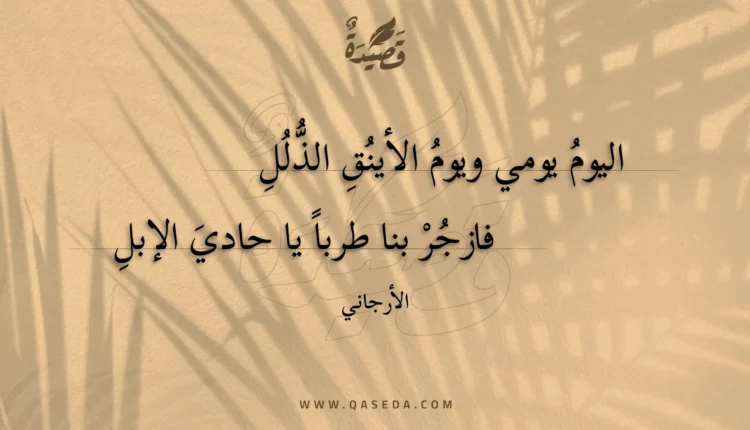 قَصِيْدَةٌ
اليومُ يومي ويومُ الأينُقِ الذُّلُلِ
فازجُرْ بنا طرباً يا حاديَ الإبلِ
الأرجاني
WWW.QASEDA.COM